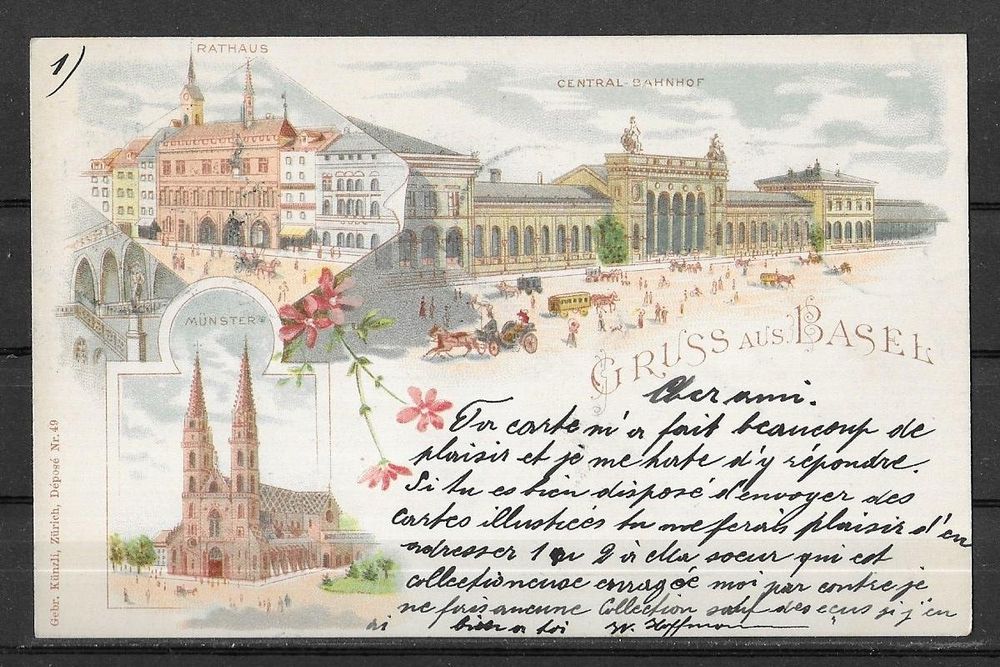 1)
RATHAUS
CENTRAL-BAHNHOF
MÜNSTER
GRUSS AUS BASEL
Cher ami.
Ta carte m'a fait beaucoup de
plaisir et je me hate d'y répondre.
Si tu es bien disposé d'envoyer des
cartes illustrées tu me ferais plaisir d'en
adresser 1 ou 2 à ma soeur qui est
collectioneuse enragée moi par contre je
ne fais aucune Collection sauf des écus si j'en
ai bien a toi W. Hoffmann
Gebr. Künzli, Zürich, Déposé Nr. 49